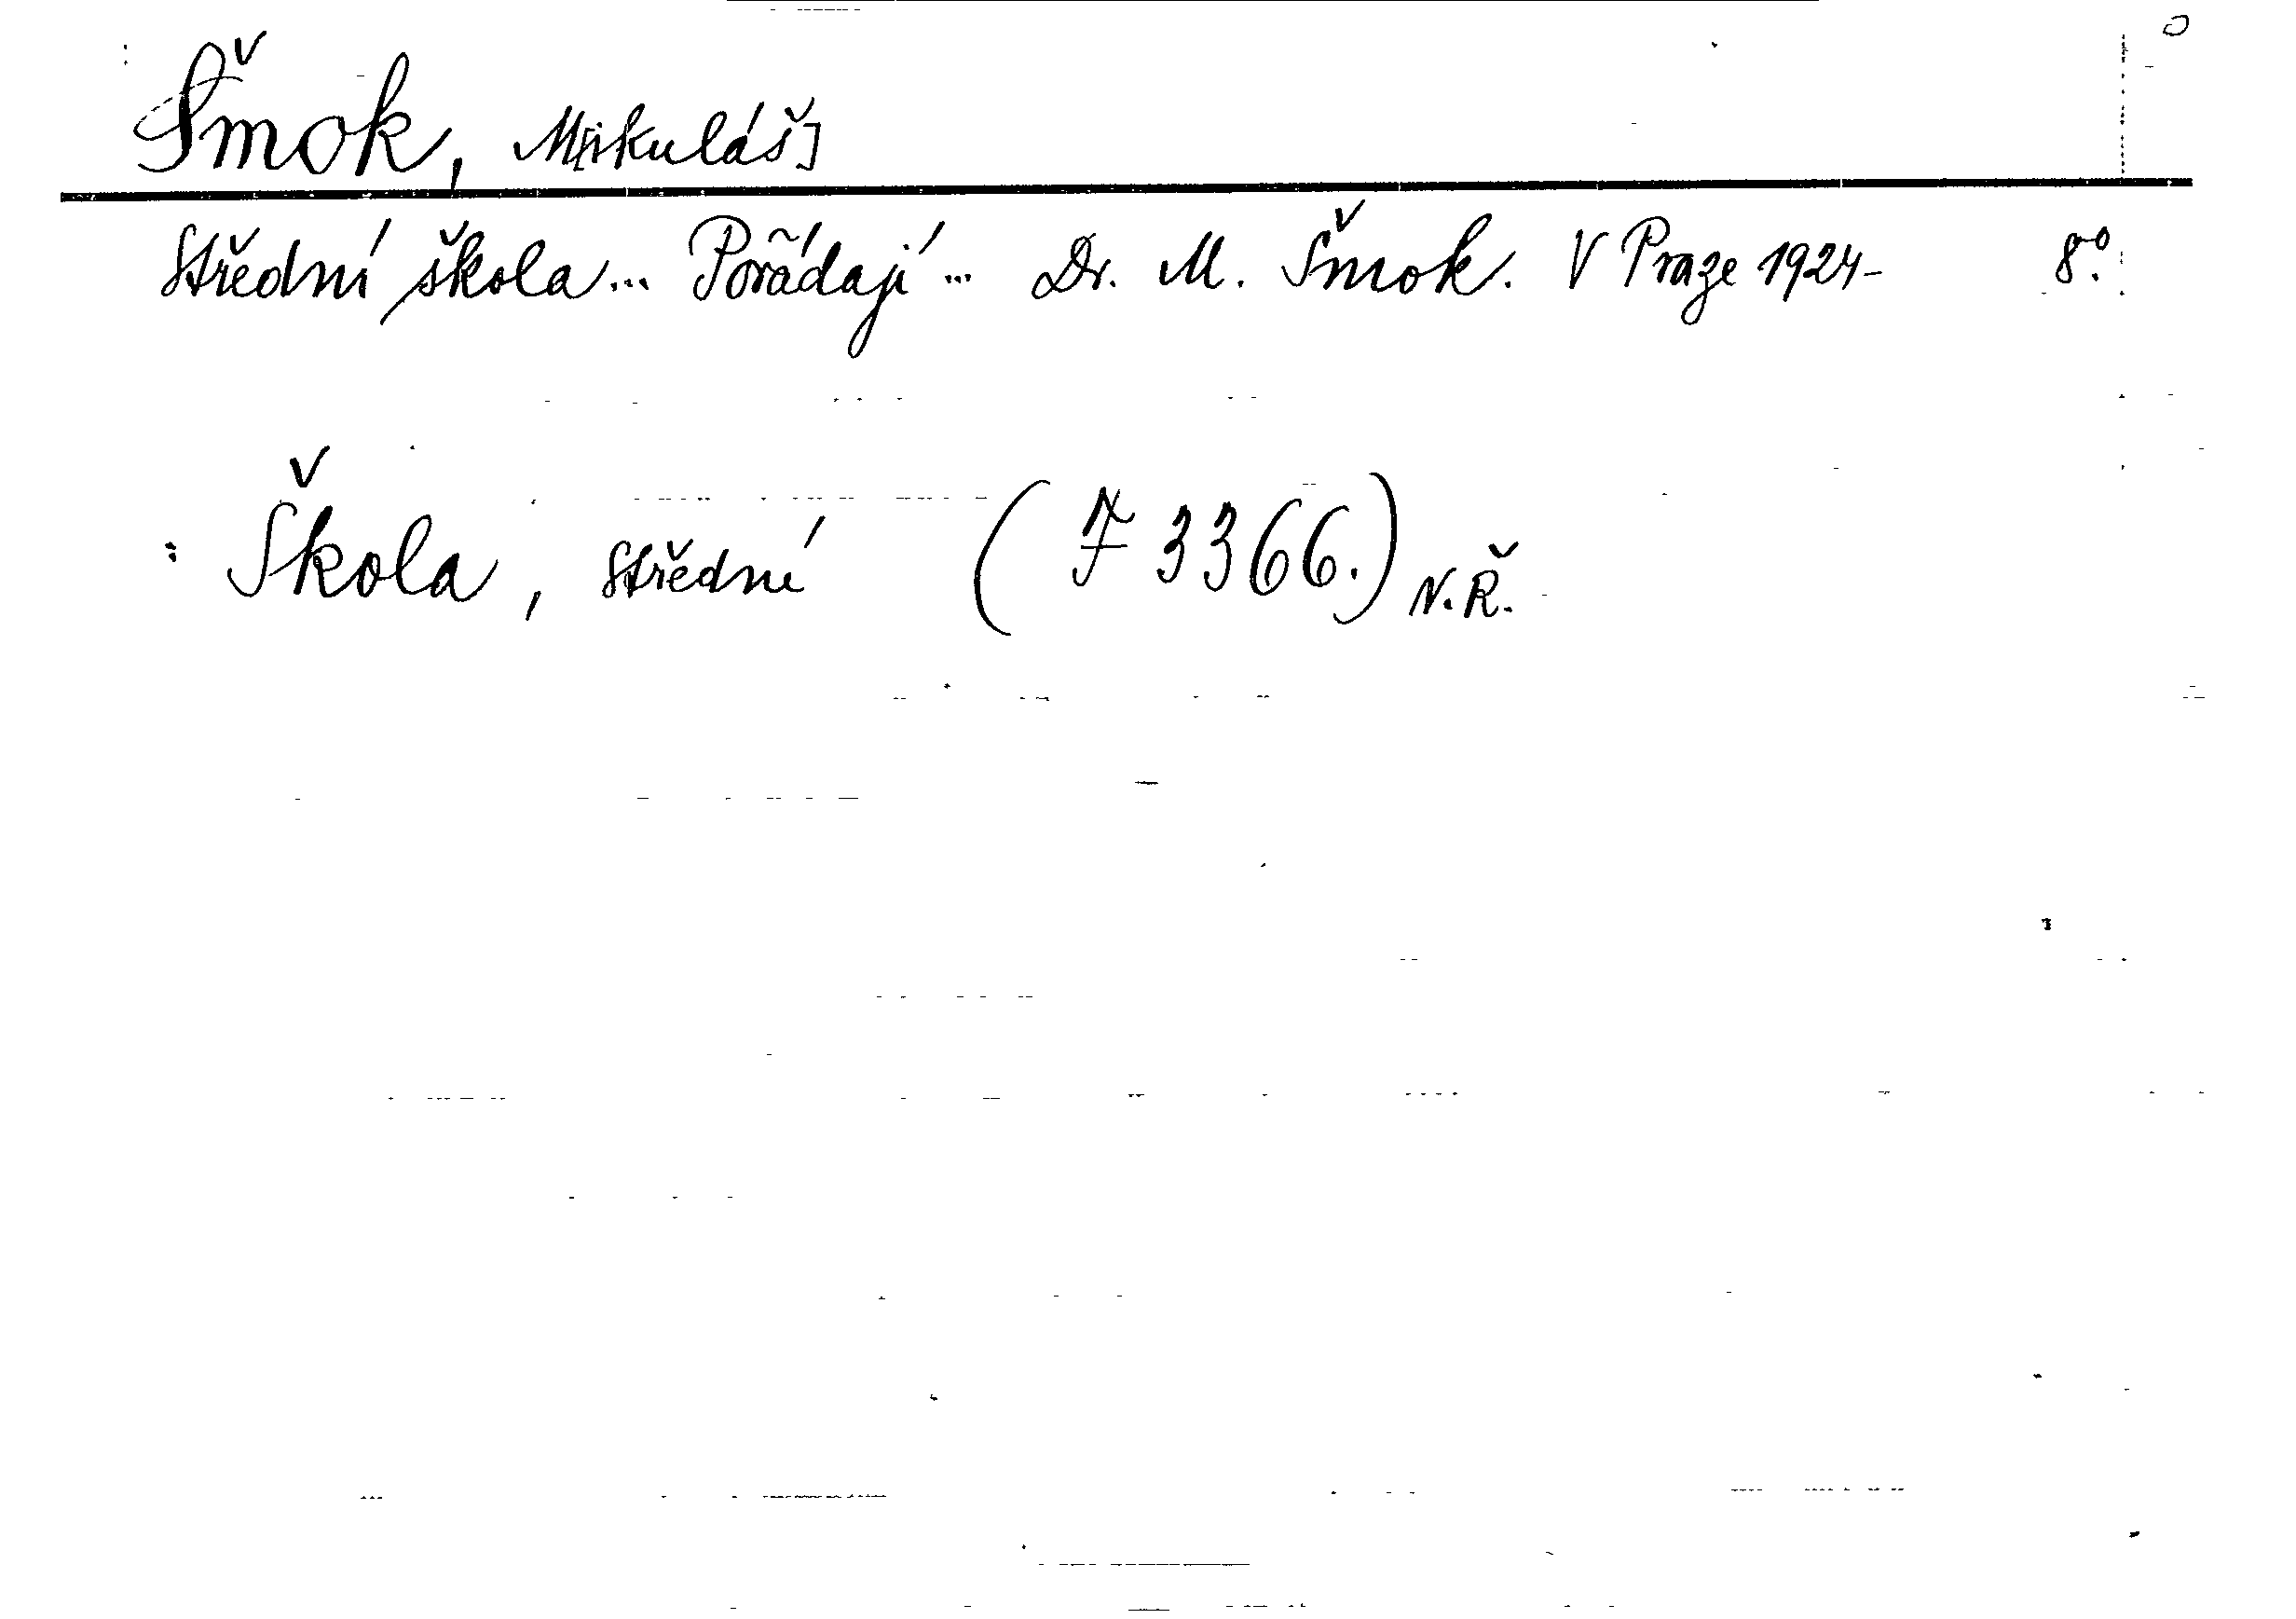 Šmok, M[ikuláš]
Střední škola... Pořádají... Dr. M. Šmok. V Praze 1924- 8°.
: Škola, střední (F 3366.) N.Ř.